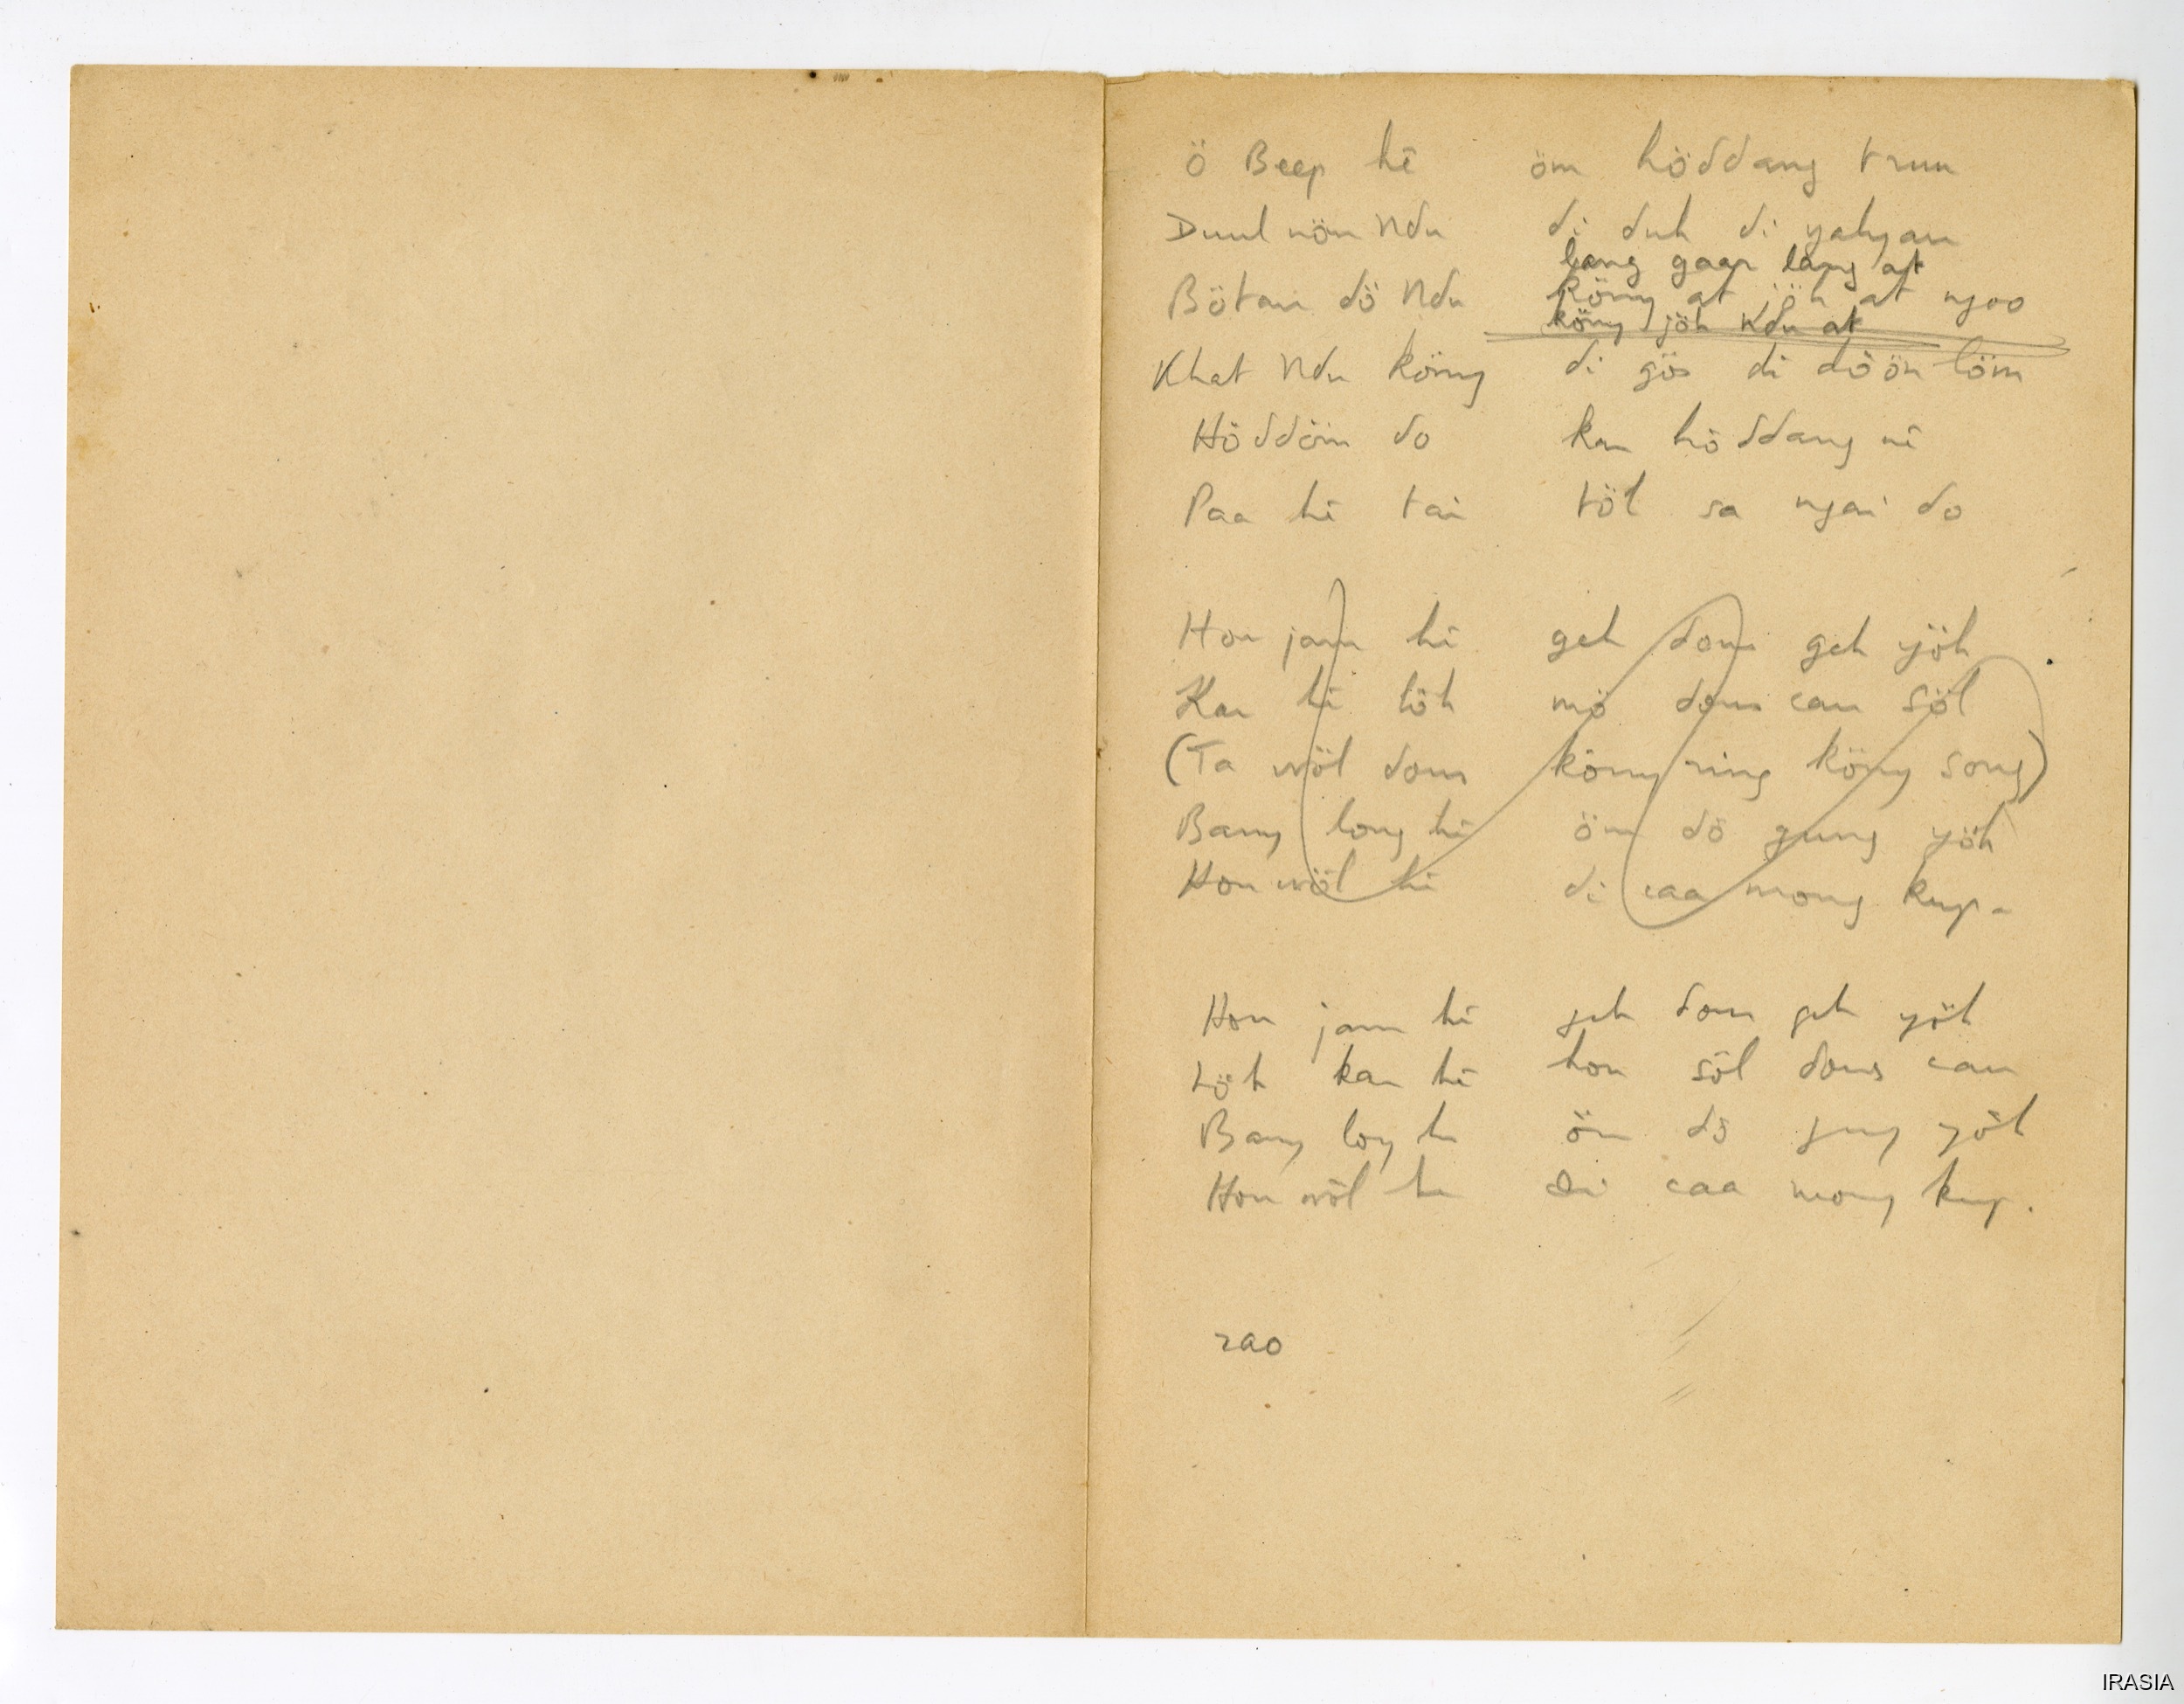 Ö Beep hê öm höddang trun
Duul nöm Ndu di duh di yahyau
lang gaar lang at
Bötau dö Ndu köng at jöh at ngoo
köng jöh Ndu at
Khat Ndu köng di gös di döön löm
Höddöm do kan höddang ni
Paa hê tai töl sa ngai do
Hou jam hê geh dom geh yöh
Kau hê löh mö dom cau söl
(Ta wöl dom köng ring köng song)
Bang long hê öm dö gung yöh
Hou wöl hê di caa mong kup.
Hou jam hê geh dom geh yöh
Löh kau hê hou söl dom cau
Bang long öm dö gung yöh
Hou wöl di caa mong kup.
rao
IRASIA